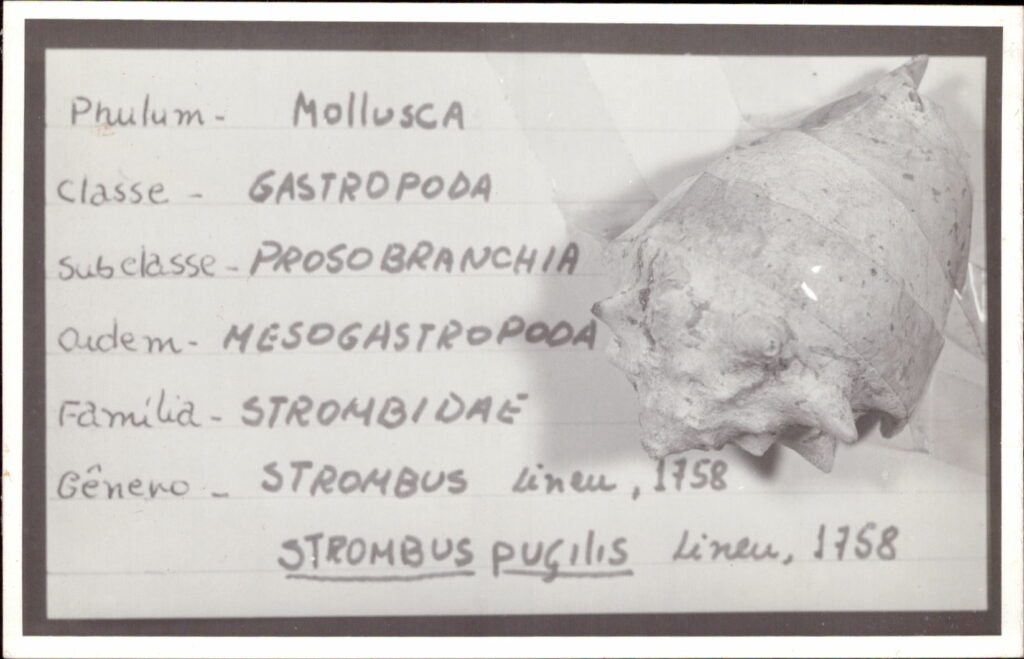 Phulum - MOLLUSCA
Classe - GASTROPODA
Subclasse - PROSOBRANCHIA
Ordem - MESOGASTROPODA
Família - STROMBIDAE
Gênero - STROMBUS Lineu, 1758
STROMBUS PUGILIS Lineu, 1758